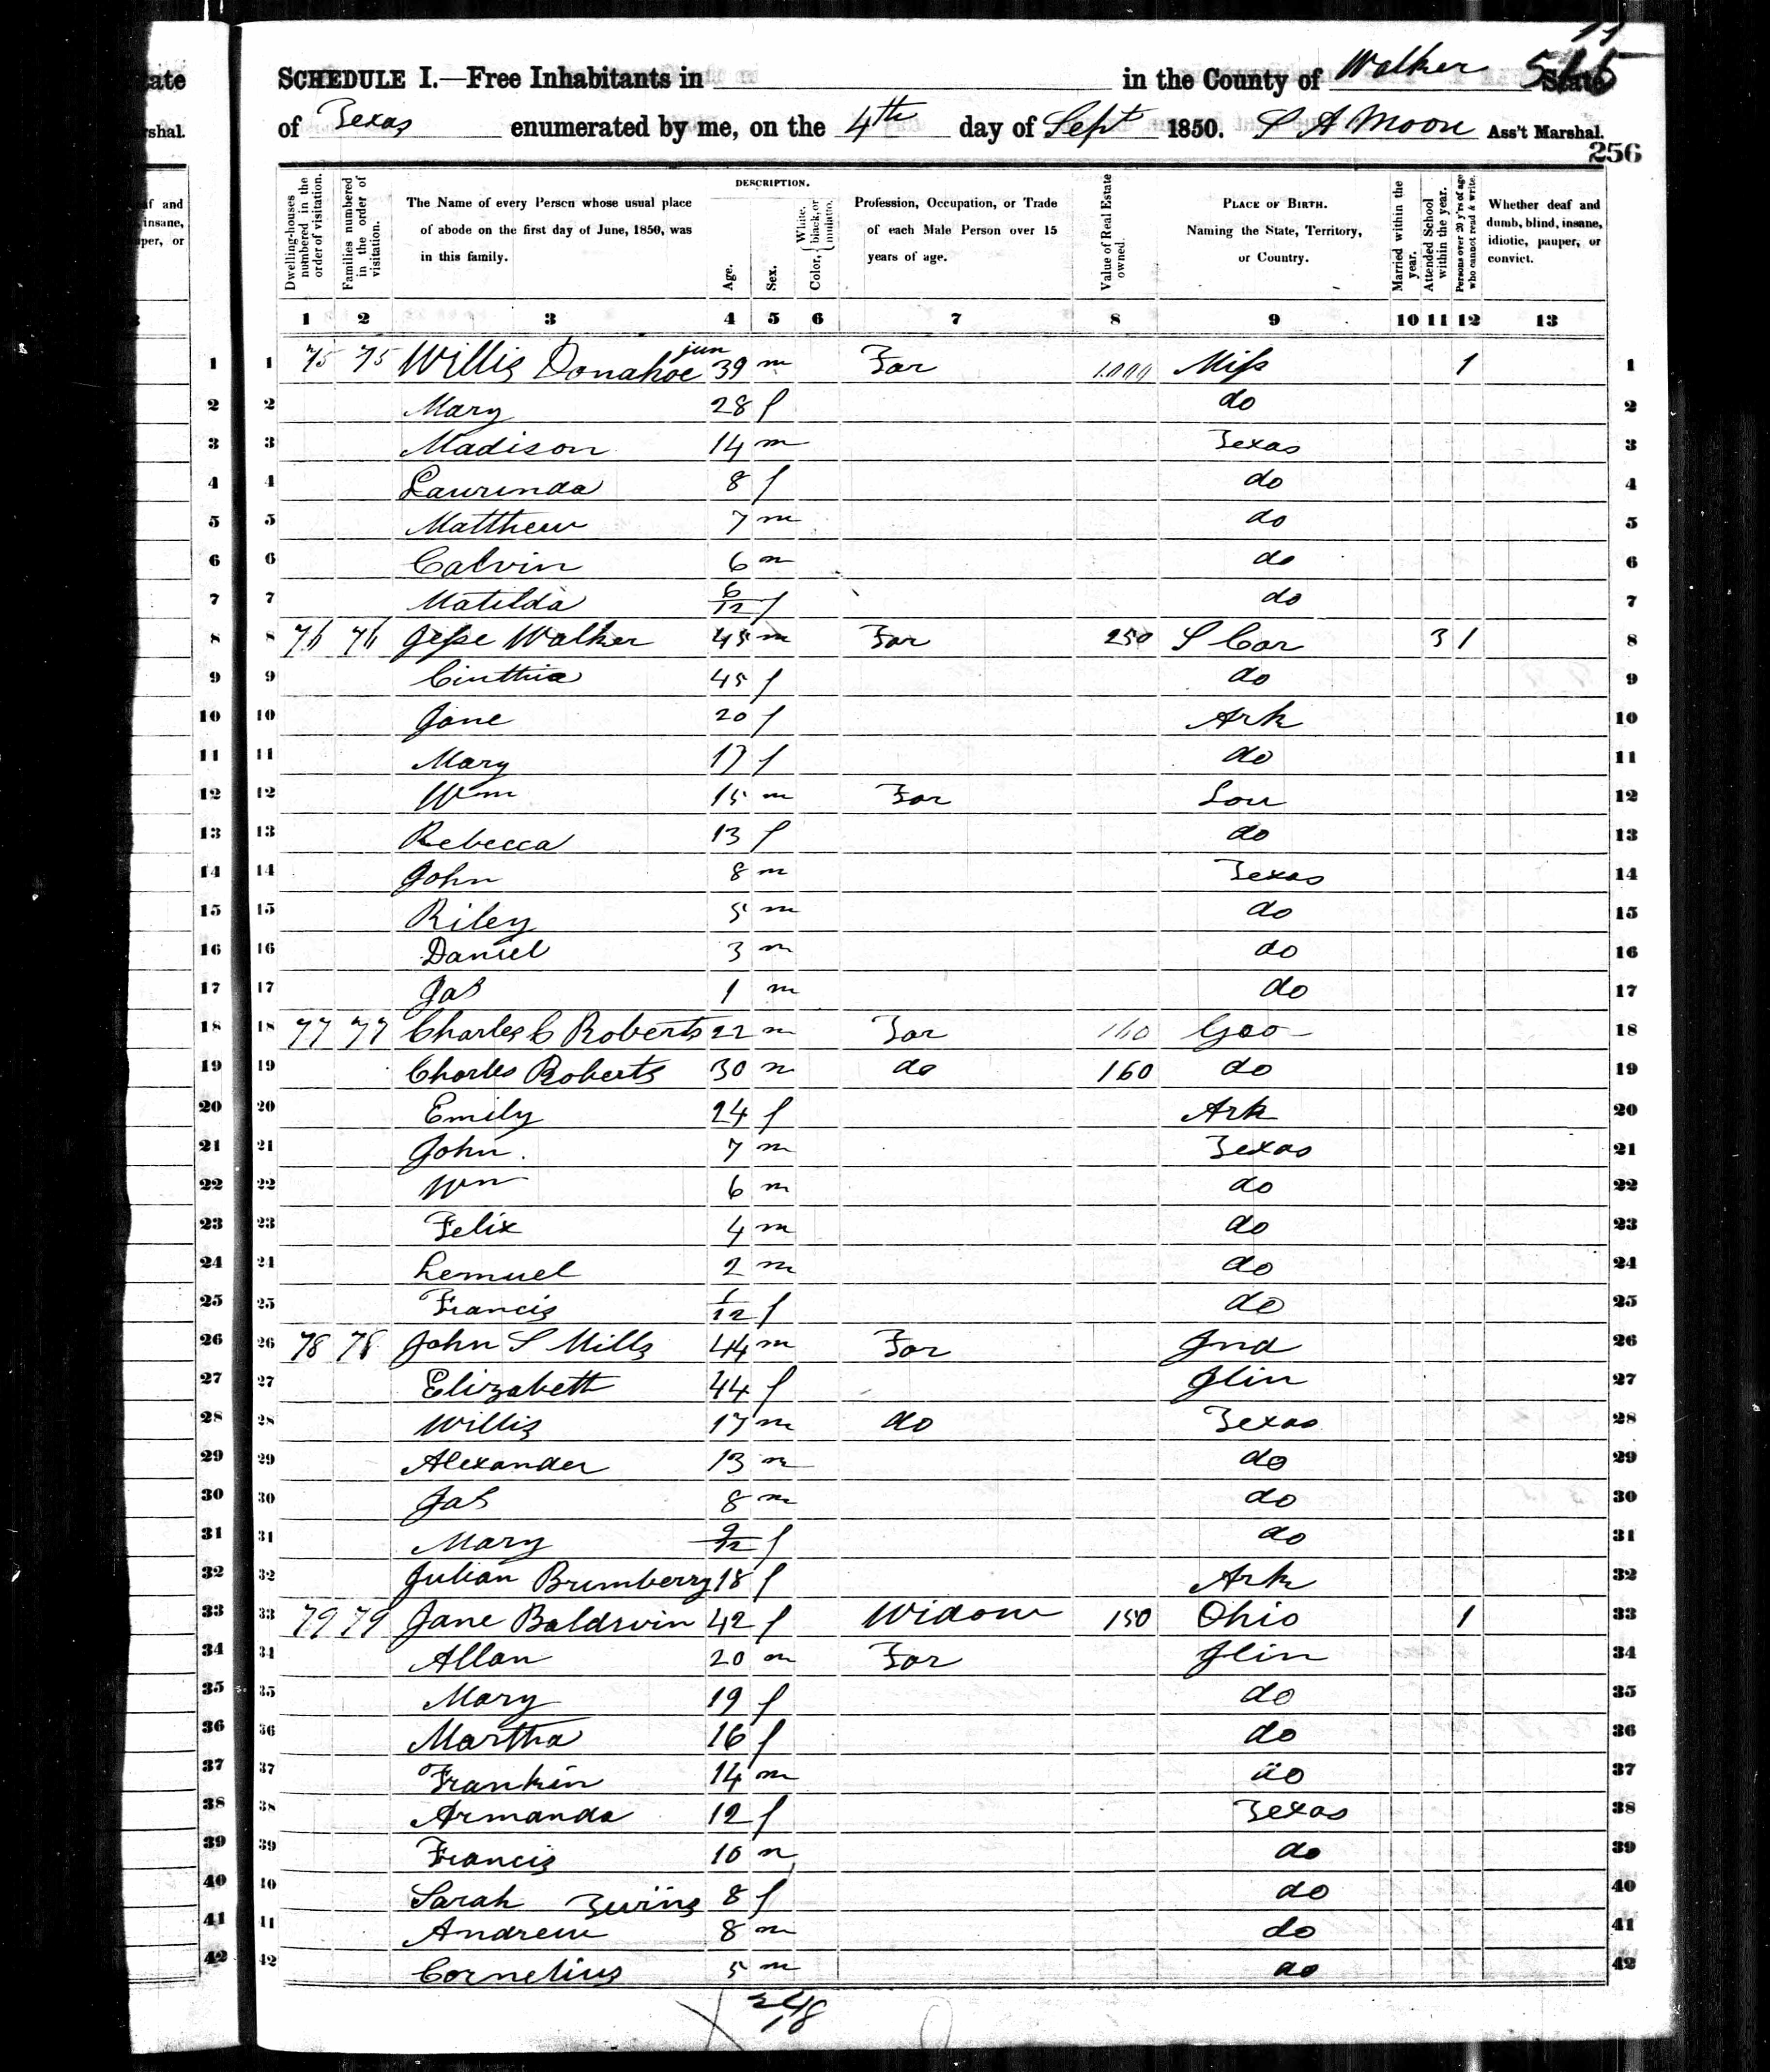 SCHEDULE I.—Free Inhabitants in in the County of Walker State
of Texas enumerated by me, on the 4th day of Sept 1850. S A Moon Ass't Marshal.
256
Dwelling-houses numbered in the order of visitation.
Families numbered in the order of visitation.
The Name of every Person whose usual place of abode on the first day of June, 1850, was in this family.
DESCRIPTION.
Age.
Sex.
Color, White, black, or mulatto.
Profession, Occupation, or Trade of each Male Person over 15 years of age.
Value of Real Estate owned.
PLACE OF BIRTH. Naming the State, Territory, or Country.
Married within the year.
Attended School within the year.
Persons over 20 y'rs of age who cannot read & write.
Whether deaf and dumb, blind, insane, idiotic, pauper, or convict.
1 2 3 4 5 6 7 8 9 10 11 12 13
1 75 75 Willis Donahoe jun 39 m Far 1.000 Miss 1 1
2 Mary 28 f do 2
3 Madison 14 m Texas 3
4 Laurinda 8 f do 4
5 Matthew 7 m do 5
6 Calvin 6 m do 6
7 Matilda 6/12 f do 7
8 76 76 Jesse Walker 45 m Far 250 S Car 3 1 8
9 Cinthia 45 f do 9
10 Jane 20 f Ark 10
11 Mary 17 f do 11
12 Wm 15 m Far Lou 12
13 Rebecca 13 f do 13
14 John 8 m Texas 14
15 Riley 5 m do 15
16 Daniel 3 m do 16
17 Jas 1 m do 17
18 77 77 Charles C Roberts 22 m Far 160 Geo 18
19 Charles Roberts 30 m do 160 do 19
20 Emily 24 f Ark 20
21 John 7 m Texas 21
22 Wm 6 m do 22
23 Felix 4 m do 23
24 Lemuel 2 m do 24
25 Francis 1/12 f do 25
26 78 78 John S Mills 44 m Far Ind 26
27 Elizabeth 44 f Ilin 27
28 Willis 17 m do Texas 28
29 Alexander 13 m do 29
30 Jas 8 m do 30
31 Mary 9/12 f do 31
32 Julian Brumberry 18 f Ark 32
33 79 79 Jane Baldwin 42 f Widow 150 Ohio 1 33
34 Allan 20 m Far Ilin 34
35 Mary 19 f do 35
36 Martha 16 f do 36
37 Franklin 14 m do 37
38 Armanda 12 f Texas 38
39 Francis 10 m do 39
40 Sarah Twins 8 f do 40
41 Andrew 8 m do 41
42 Cornelius 5 m do 42